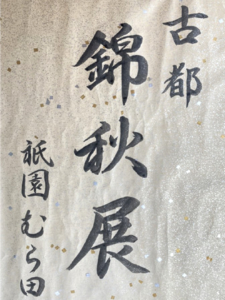 古都
錦秋展
祇園むら田